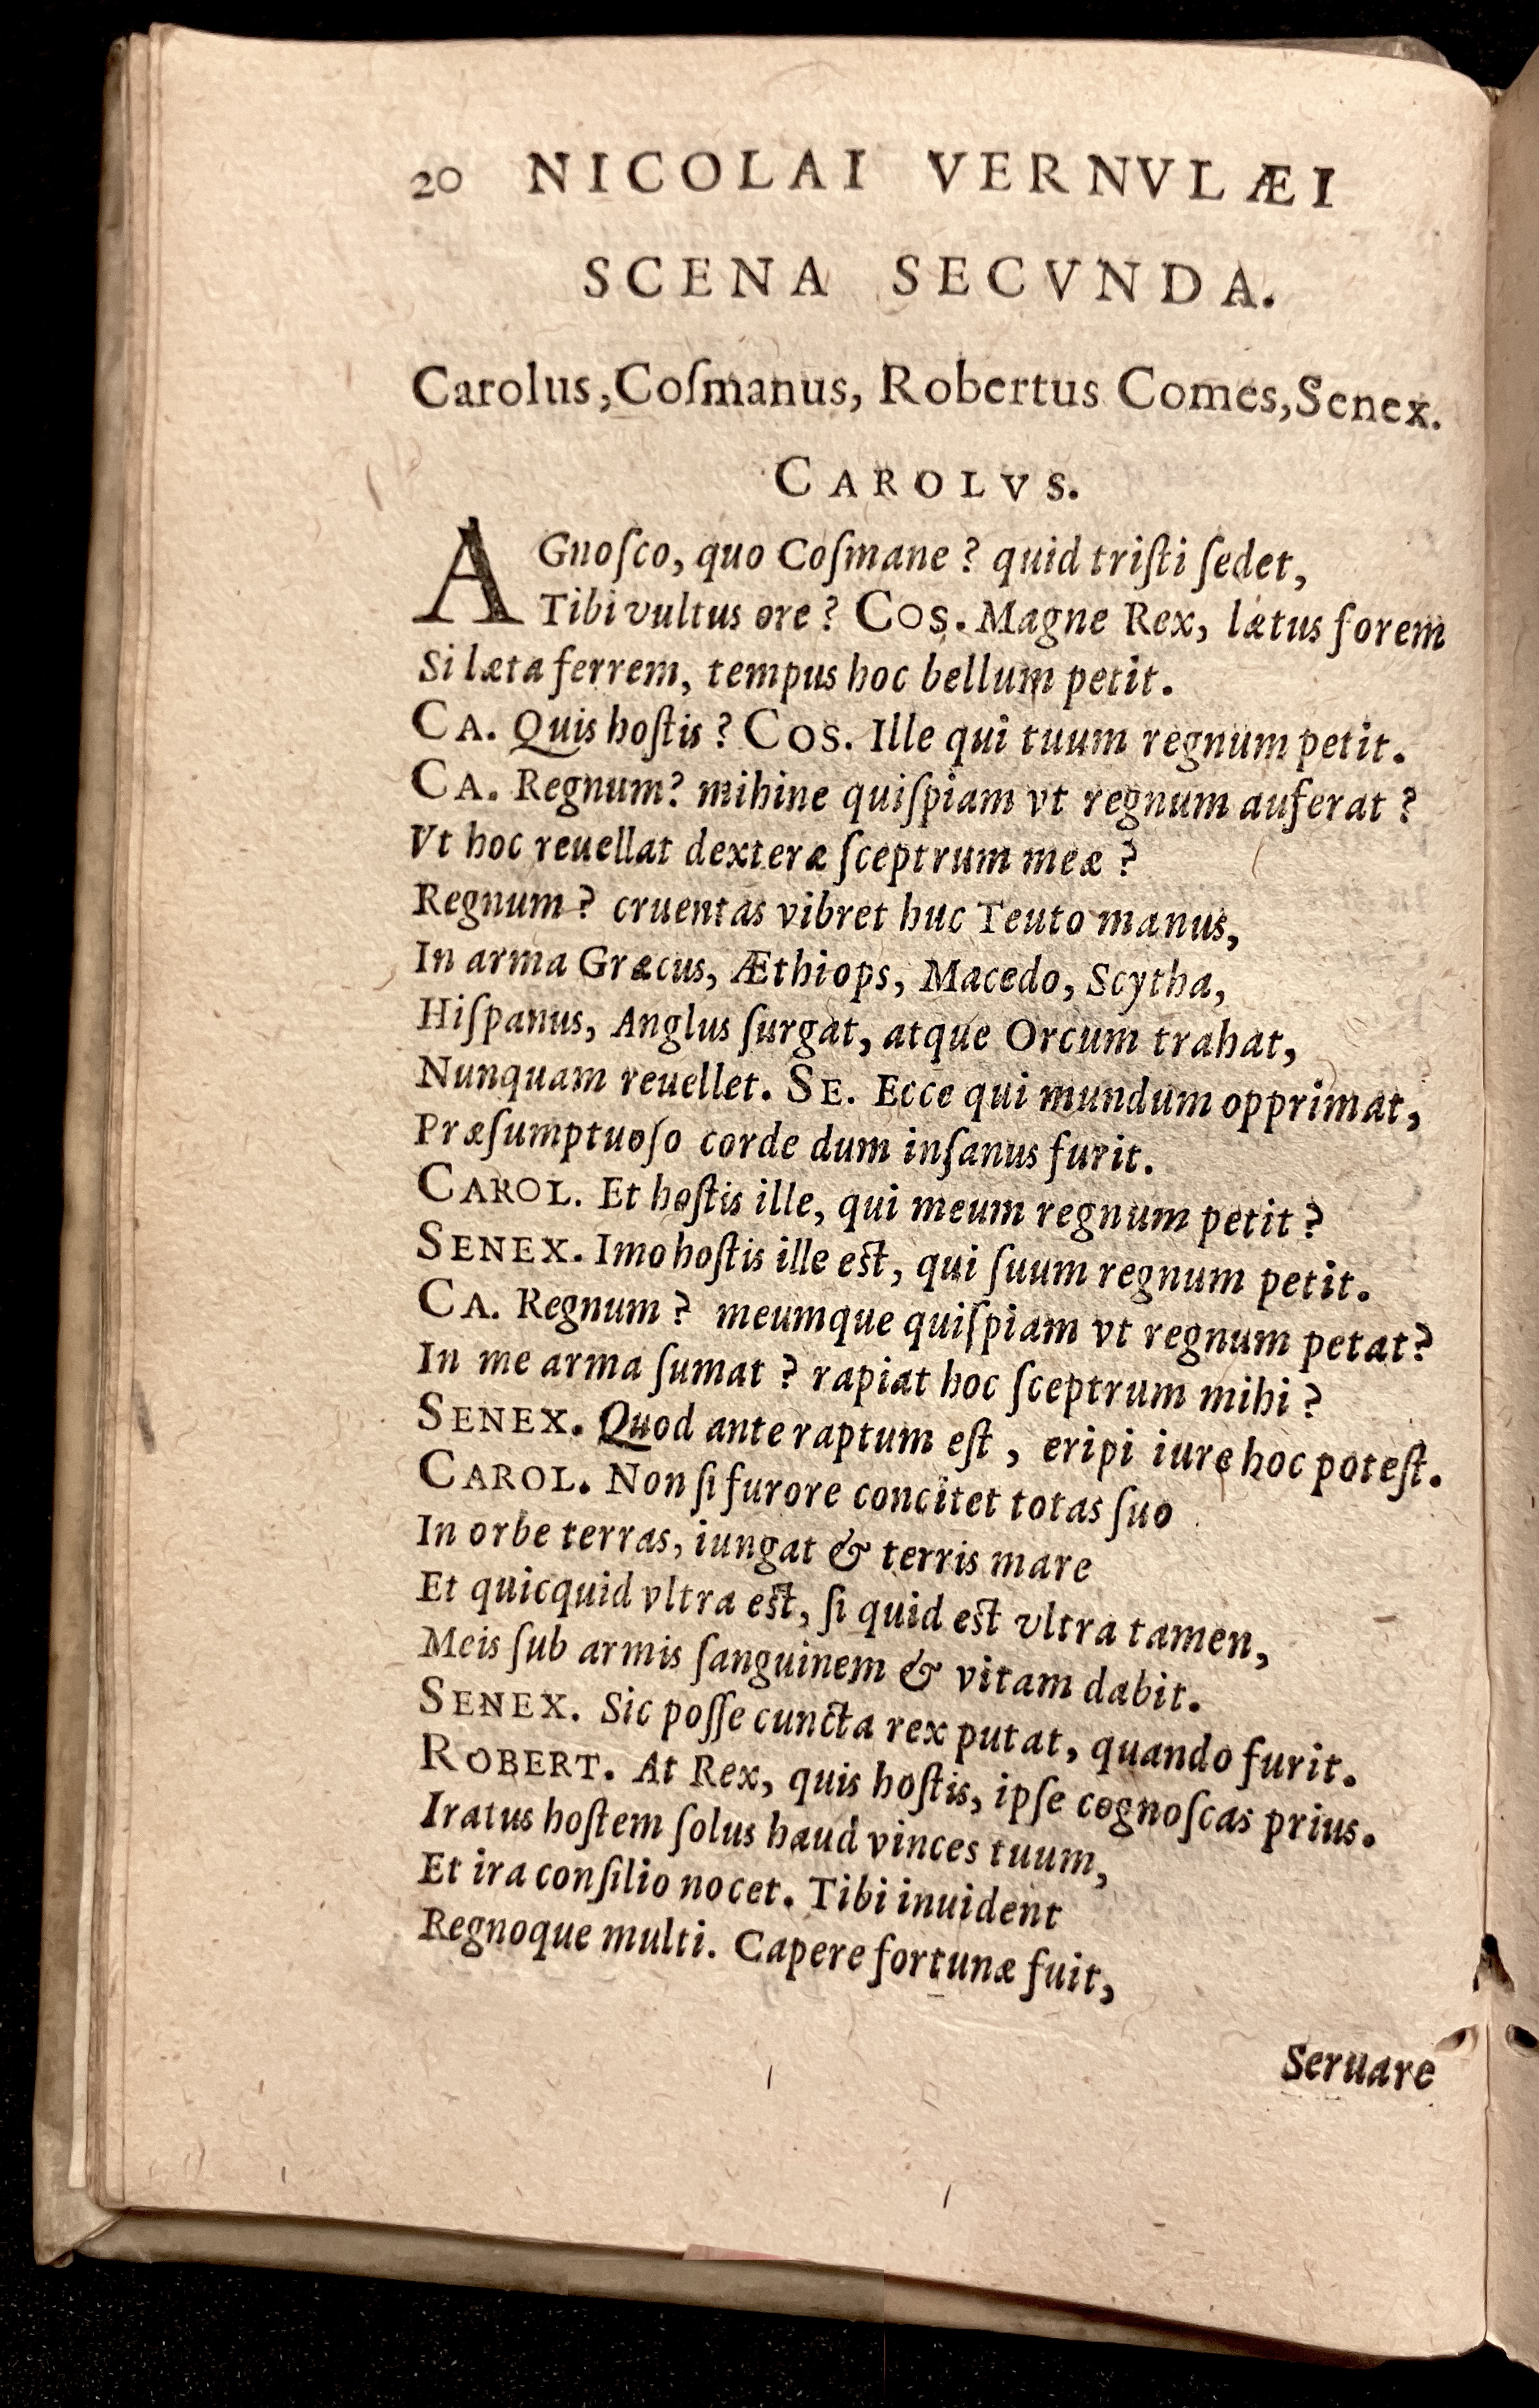 20 NICOLAI VERNVLÆI
SCENA SECVNDA.
Carolus, Coſmanus, Robertus Comes, Senex.
CAROLVS.
AGnoſco, quo Coſmane? quid triſti ſedet,
Tibi vultus ore? COS. Magne Rex, lætus forem
Si læta ferrem, tempus hoc bellum petit.
CA. Quis hoſtis? COS. Ille qui tuum regnum petit.
CA. Regnum? mihine quiſpiam vt regnum auferat?
Vt hoc reuellat dexteræ ſceptrum meæ?
Regnum? cruentas vibret huc Teuto manus,
In arma Græcus, Æthiops, Macedo, Scytha,
Hiſpanus, Anglus ſurgat, atque Orcum trahat,
Nunquam reuellet. SE. Ecce qui mundum opprimat,
Præſumptuoſo corde dum inſanus furit.
CAROL. Et hoſtis ille, qui meum regnum petit?
SENEX. Imo hoſtis ille eſt, qui ſuum regnum petit.
CA. Regnum? meumque quiſpiam vt regnum petat?
In me arma ſumat? rapiat hoc ſceptrum mihi?
SENEX. Quod ante raptum eſt, eripi iure hoc poteſt.
CAROL. Non ſi furore concitet totas ſuo
In orbe terras, iungat & terris mare
Et quicquid vltra eſt, ſi quid eſt vltra tamen,
Meis ſub armis ſanguinem & vitam dabit.
SENEX. Sic poſſe cuncta rex putat, quando furit.
ROBERT. At Rex, quis hoſtis, ipſe cognoſcas prius.
Iratus hoſtem ſolus haud vinces tuum,
Et ira conſilio nocet. Tibi inuident
Regnoque multi. Capere fortunæ fuit,
Seruare